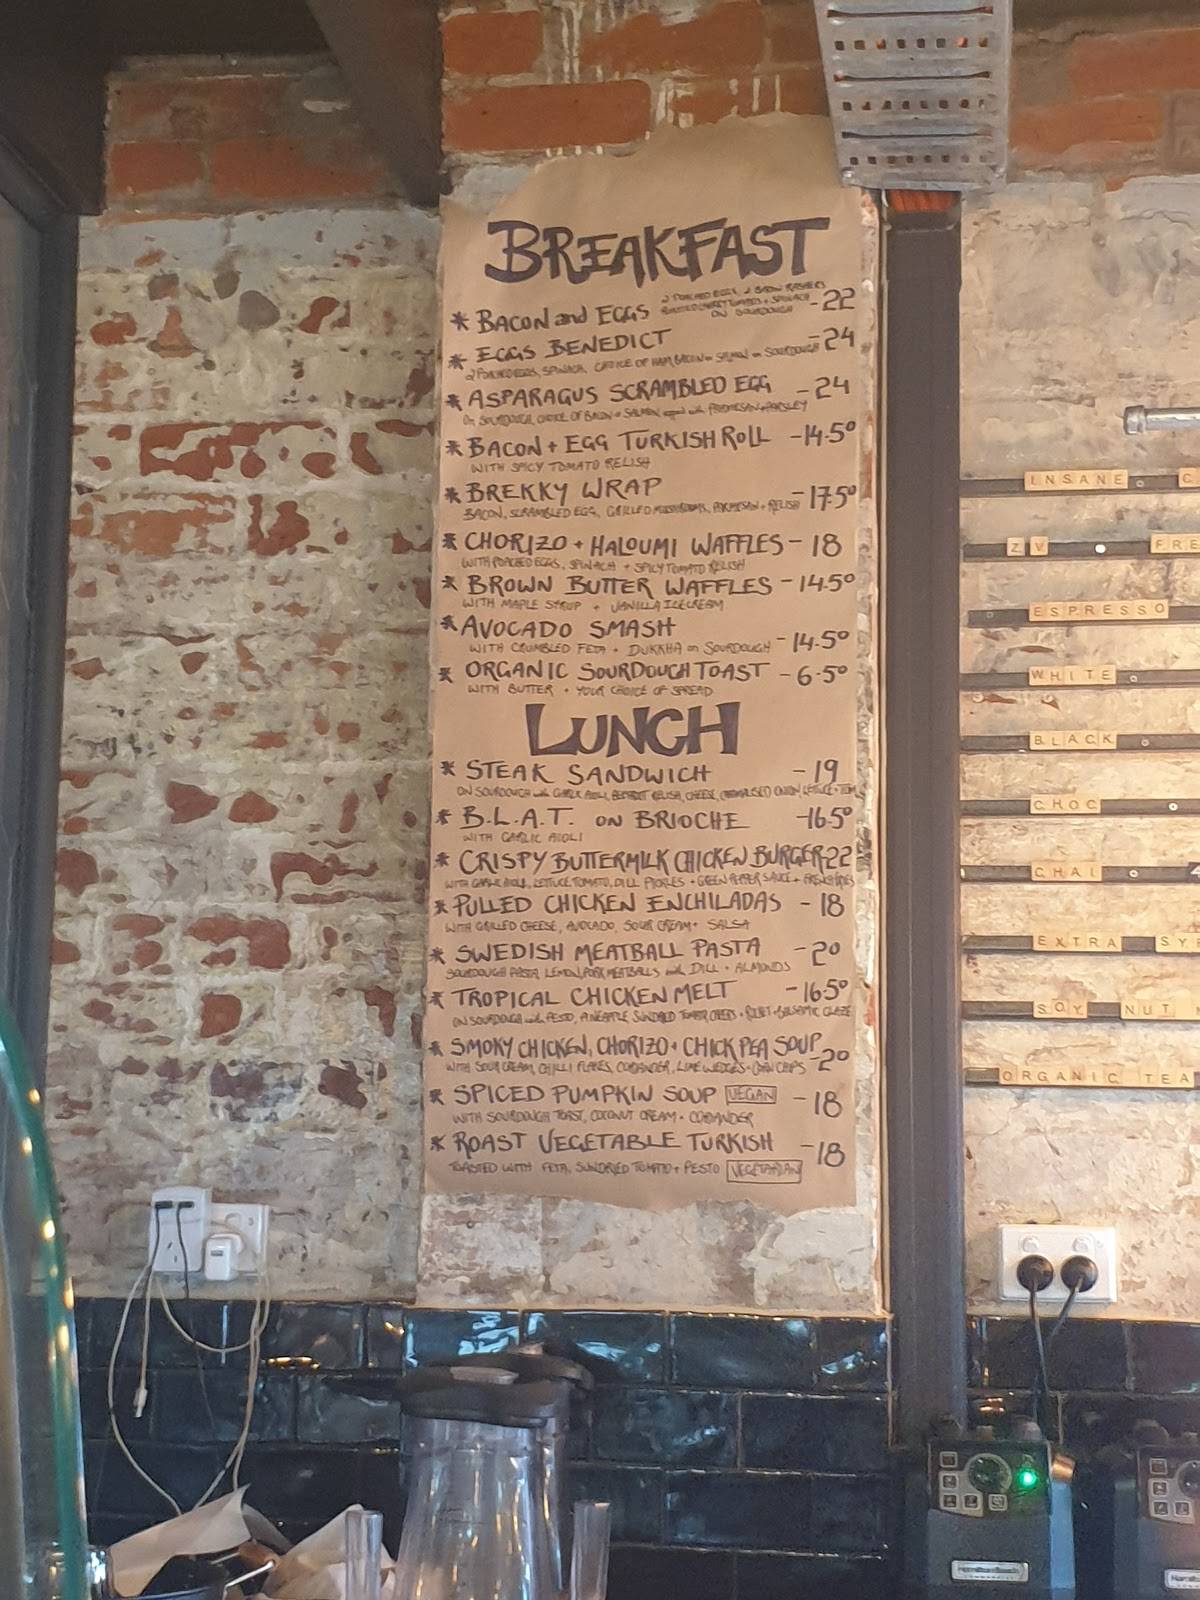 BREAKFAST
* BACON and EGGS 2 POACHED EGGS, 2 BACON RASHERS -22
ROASTED CHERRY TOMATOES + SPINACH
ON SOURDOUGH
* EGGS BENEDICT -24
2 POACHED EGGS, SPINACH, CHOICE OF HAM, BACON or SALMON on SOURDOUGH
* ASPARAGUS SCRAMBLED EGG -24
ON SOURDOUGH, CHOICE OF BACON or SALMON with PARMESAN + PARSLEY
* BACON + EGG TURKISH ROLL -14.50
WITH SPICY TOMATO RELISH
* BREKKY WRAP -17.50
BACON, SCRAMBLED EGG, GRILLED MUSHROOMS, PARMESAN + RELISH
* CHORIZO + HALOUMI WAFFLES - 18
WITH POACHED EGGS, SPINACH + SPICY TOMATO RELISH
* BROWN BUTTER WAFFLES -14.50
WITH MAPLE SYRUP + VANILLA ICECREAM
* AVOCADO SMASH
WITH CRUMBLED FETA + DUKKHA on SOURDOUGH -14.50
* ORGANIC SOURDOUGH TOAST -6.50
WITH BUTTER + YOUR CHOICE OF SPREAD
LUNCH
* STEAK SANDWICH -19
ON SOURDOUGH with GARLIC AIOLI, BEETROOT RELISH, CHEESE, CARAMALISED ONION, LETTUCE + TOM
* B.L.A.T. ON BRIOCHE -16.50
WITH GARLIC AIOLI
* CRISPY BUTTERMILK CHICKEN BURGER-22
WITH GARLIC AIOLI, LETTUCE, TOMATO, DILL PICKLES + GREEN PEPPER SAUCE + FRENCH FRIES
* PULLED CHICKEN ENCHILADAS - 18
WITH GRILLED CHEESE, AVOCADO, SOUR CREAM + SALSA
* SWEDISH MEATBALL PASTA -20
SOURDOUGH PASTA, LEMON, PORK MEATBALLS with DILL + ALMONDS
* TROPICAL CHICKEN MELT -16.50
ON SOURDOUGH with PESTO, PINEAPPLE, SUNDRIED TOMATO, CHEESE + ROCKET + BALSAMIC GLAZE
* SMOKY CHICKEN, CHORIZO + CHICKPEA SOUP -20
WITH SOUR CREAM, CHILLI FLAKES, CORIANDER, LIME WEDGES + CORN CHIPS
* SPICED PUMPKIN SOUP VEGAN -18
WITH SOURDOUGH TOAST, COCONUT CREAM + CORIANDER
* ROAST VEGETABLE TURKISH -18
TOASTED WITH FETA, SUNDRIED TOMATO + PESTO VEGETARIAN
INSANE C
ZV FRE
ESPRESSO
WHITE
BLACK
CHOC
CHAI 4
EXTRA SY
SOY NUT
ORGANIC TEA
Hamilton Beach